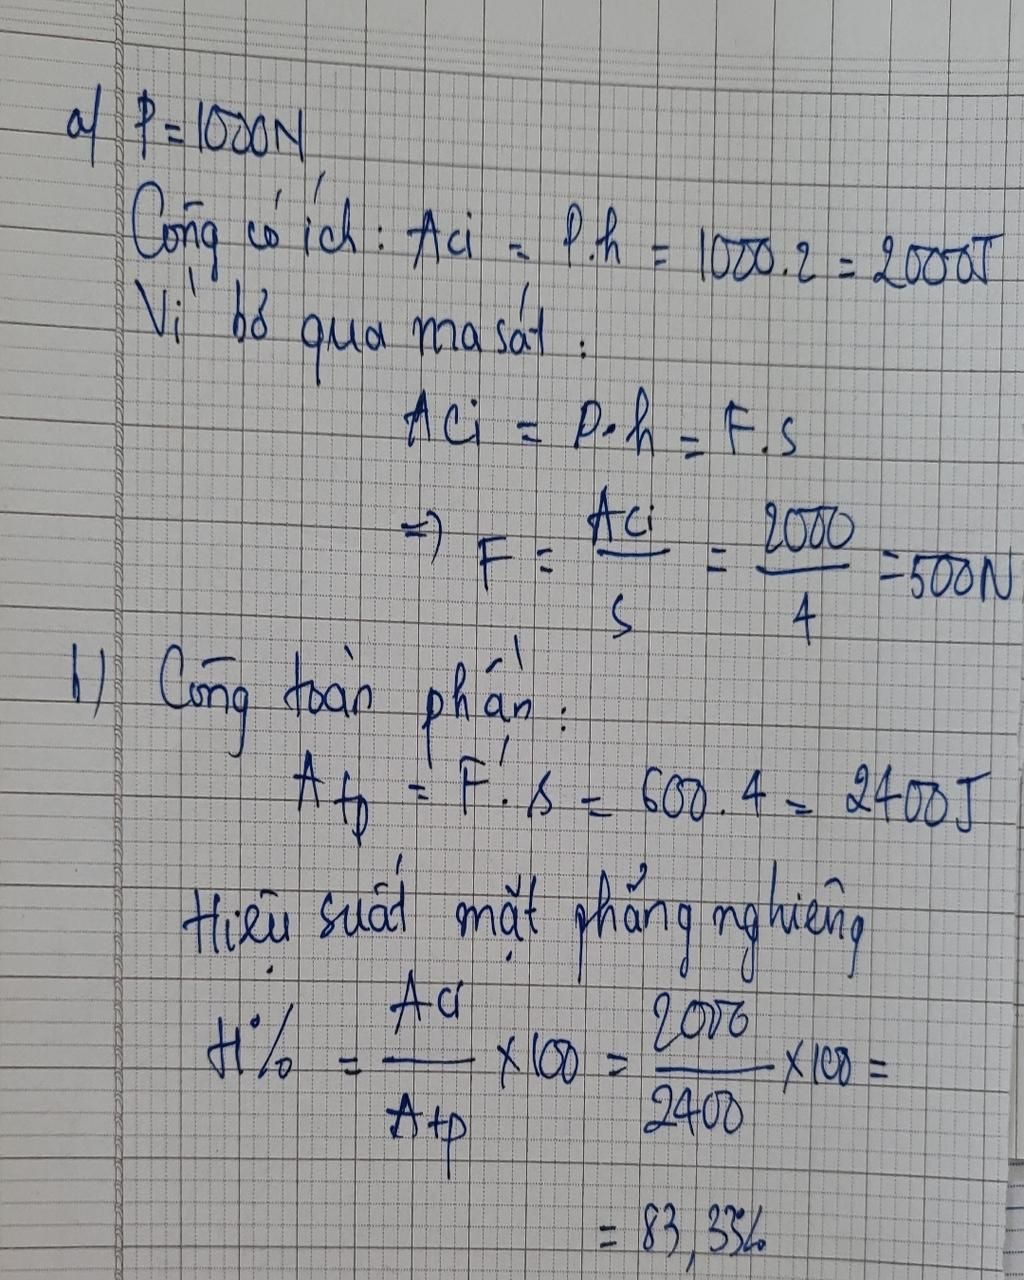 a) P = 1000N
Công có ích : Aci = P.h = 1000.2 = 2000J
Vì bỏ qua ma sát :
Aci = P.h = F.s
=> F = Aci / s = 2000 / 4 = 500N
b) Công toàn phần :
Atp = F'.s = 600.4 = 2400J
Hiệu suất mặt phẳng nghiêng
H% = Aci / Atp × 100 = 2000 / 2400 × 100 =
= 83,33%